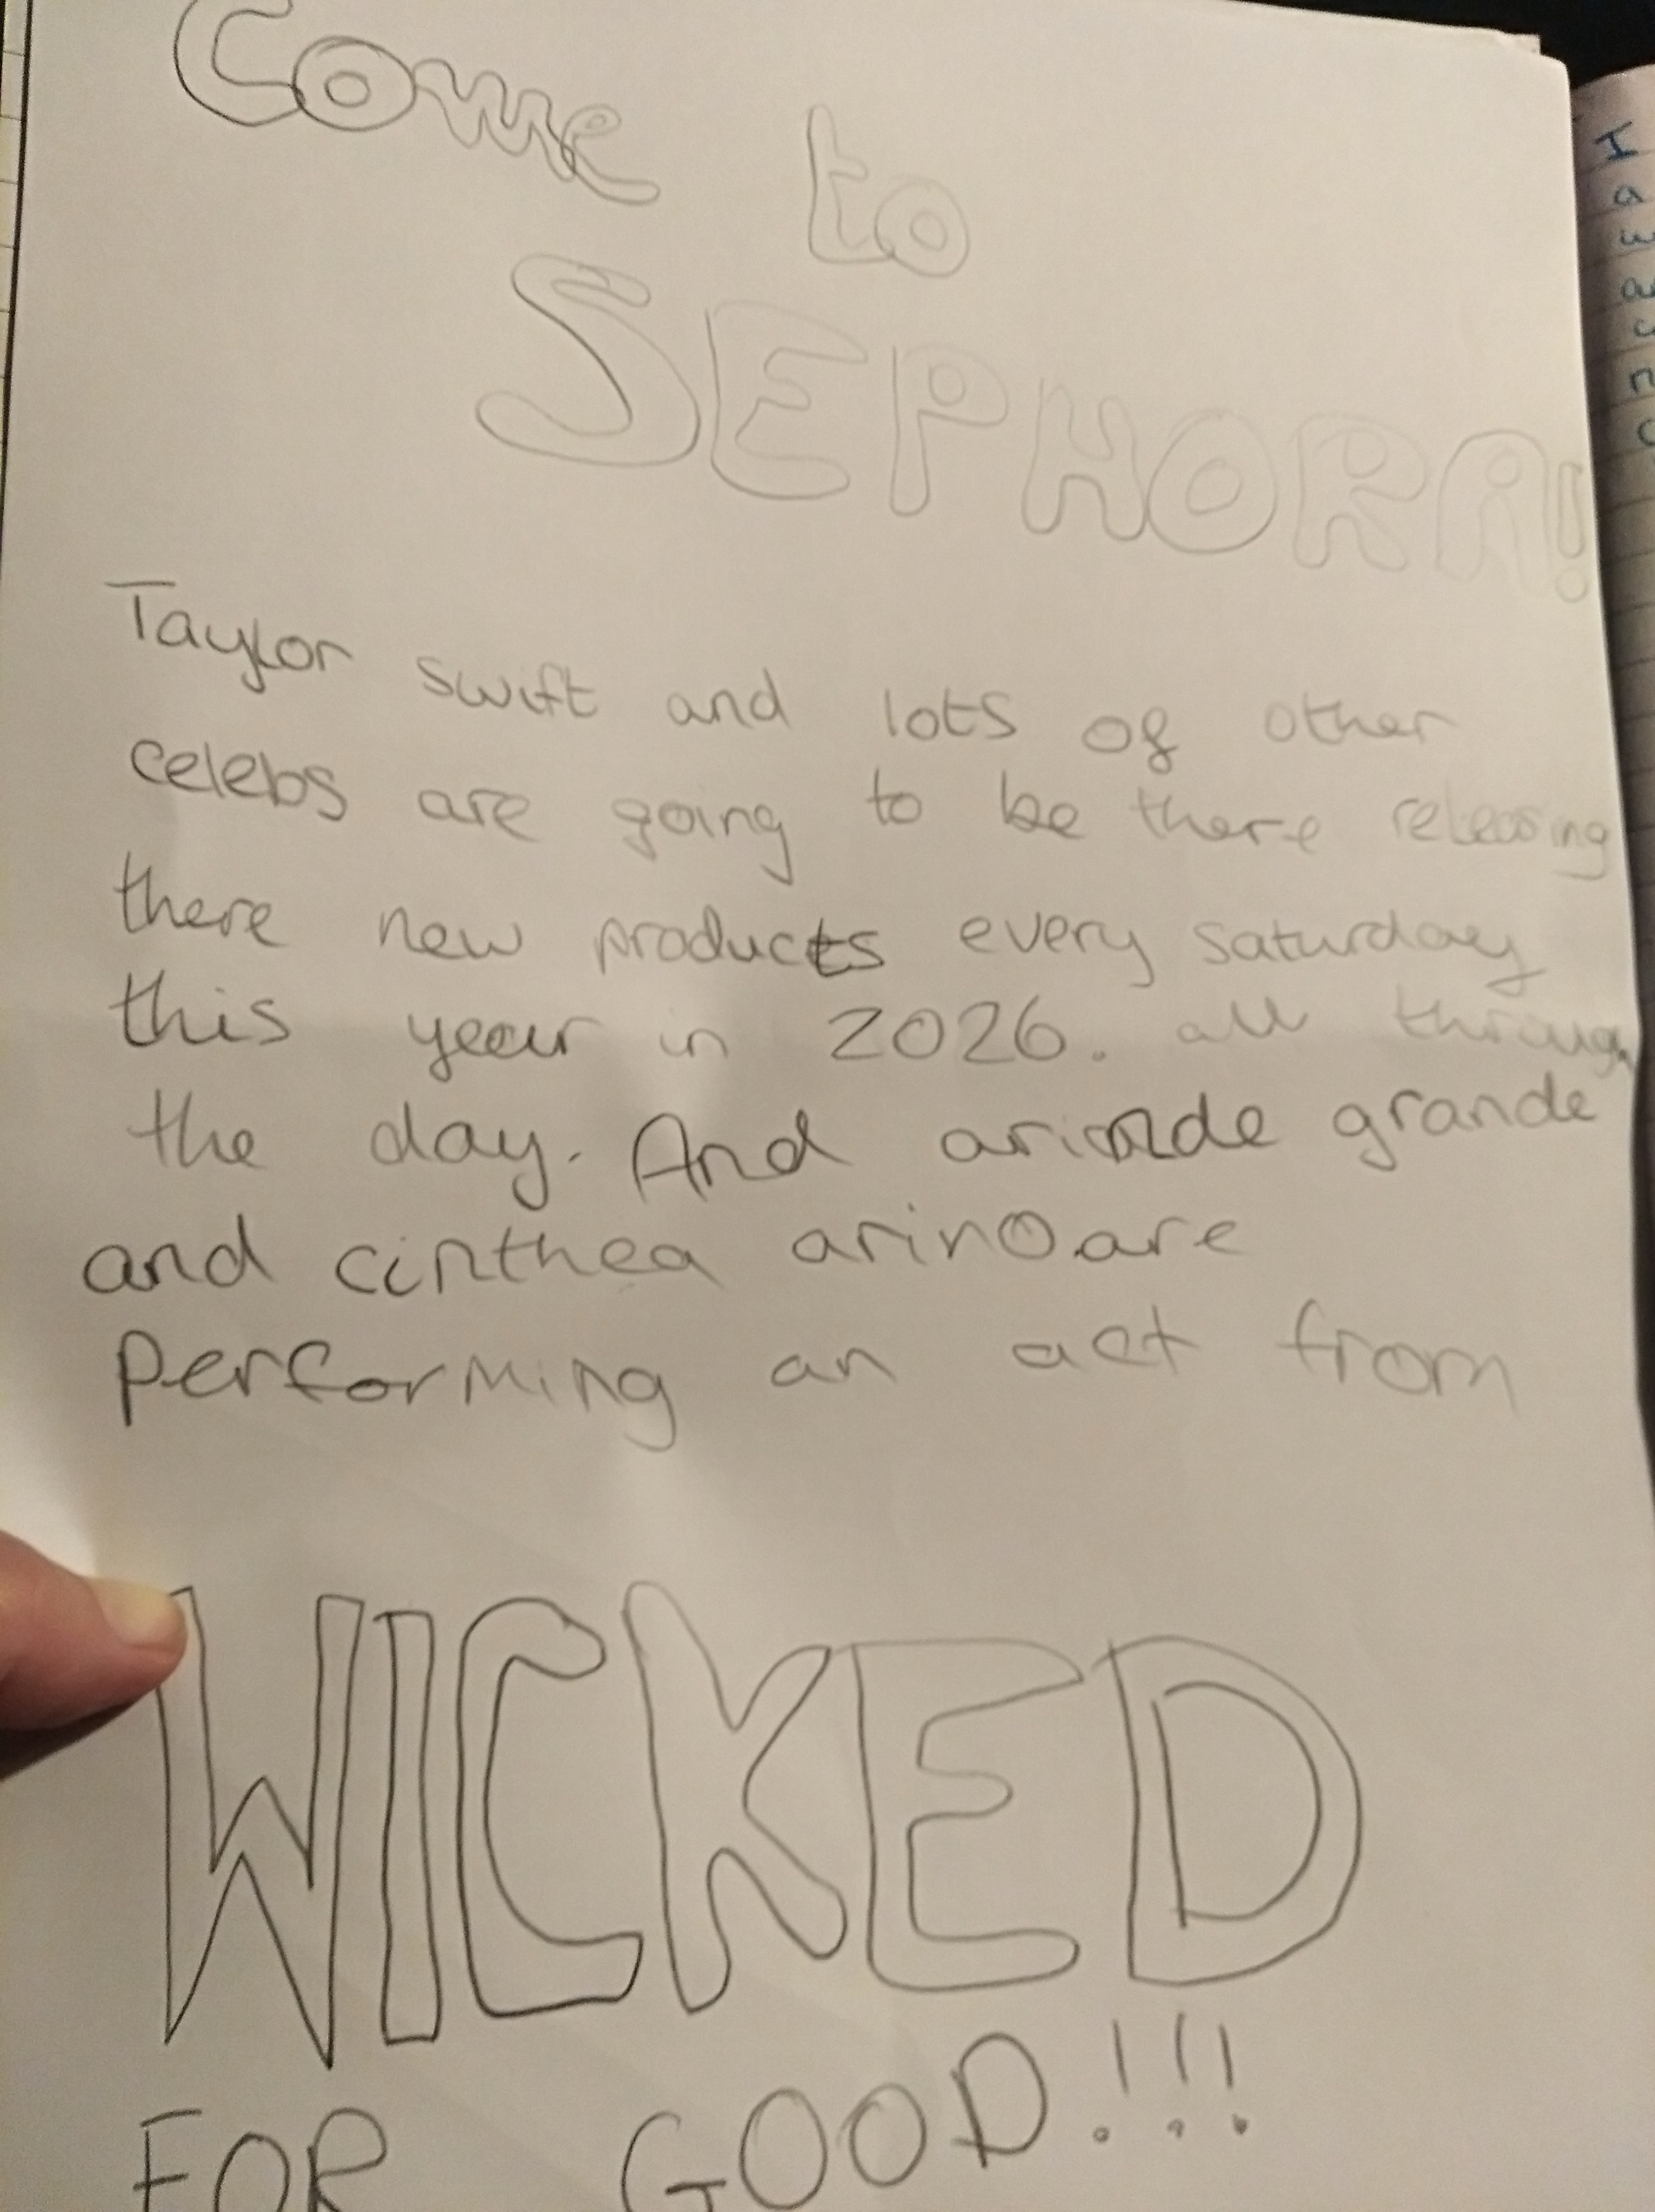 Come to
SEPHORA!
Taylor swift and lots of other
celebs are going to be there releasing
there new products every saturday
this year in 2026. all through
the day. And arianade grande
and cinthea arino are
performing an act from
WICKED
FOR GOOD!!!